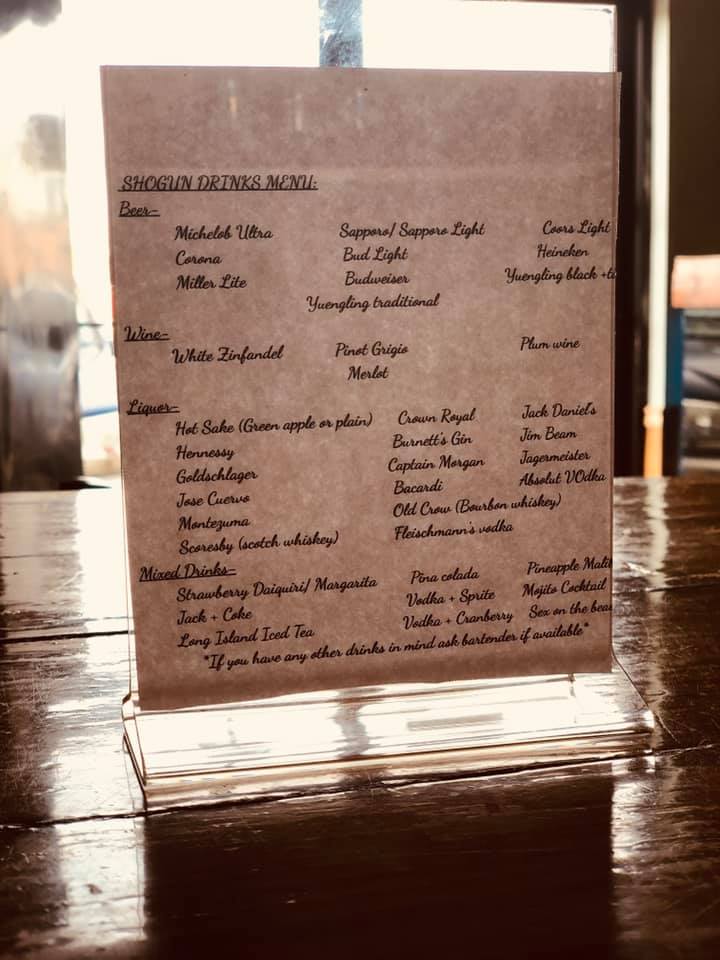 SHOGUN DRINKS MENU:
Beer-
Michelob Ultra Sapporo/ Sapporo Light Coors Light
Corona Bud Light Heineken
Miller Lite Budweiser Yuengling black +
Yuengling traditional
Wine-
White Zinfandel Pinot Grigio Plum wine
Merlot
Liquor-
Hot Sake (Green apple or plain) Crown Royal Jack Daniel's
Hennessy Burnett's Gin Jim Beam
Goldschlager Captain Morgan Jagermeister
Jose Cuervo Bacardi Absolut VOdka
Montezuma Old Crow (Bourbon whiskey)
Scoresby (scotch whiskey) Fleischmann's vodka
Mixed Drinks-
Strawberry Daiquiri/ Margarita Pina colada Pineapple
Jack + Coke Vodka + Sprite Mojito Cocktail
Long Island Iced Tea Vodka + Cranberry Sex on the
*If you have any other drinks in mind ask bartender if available*